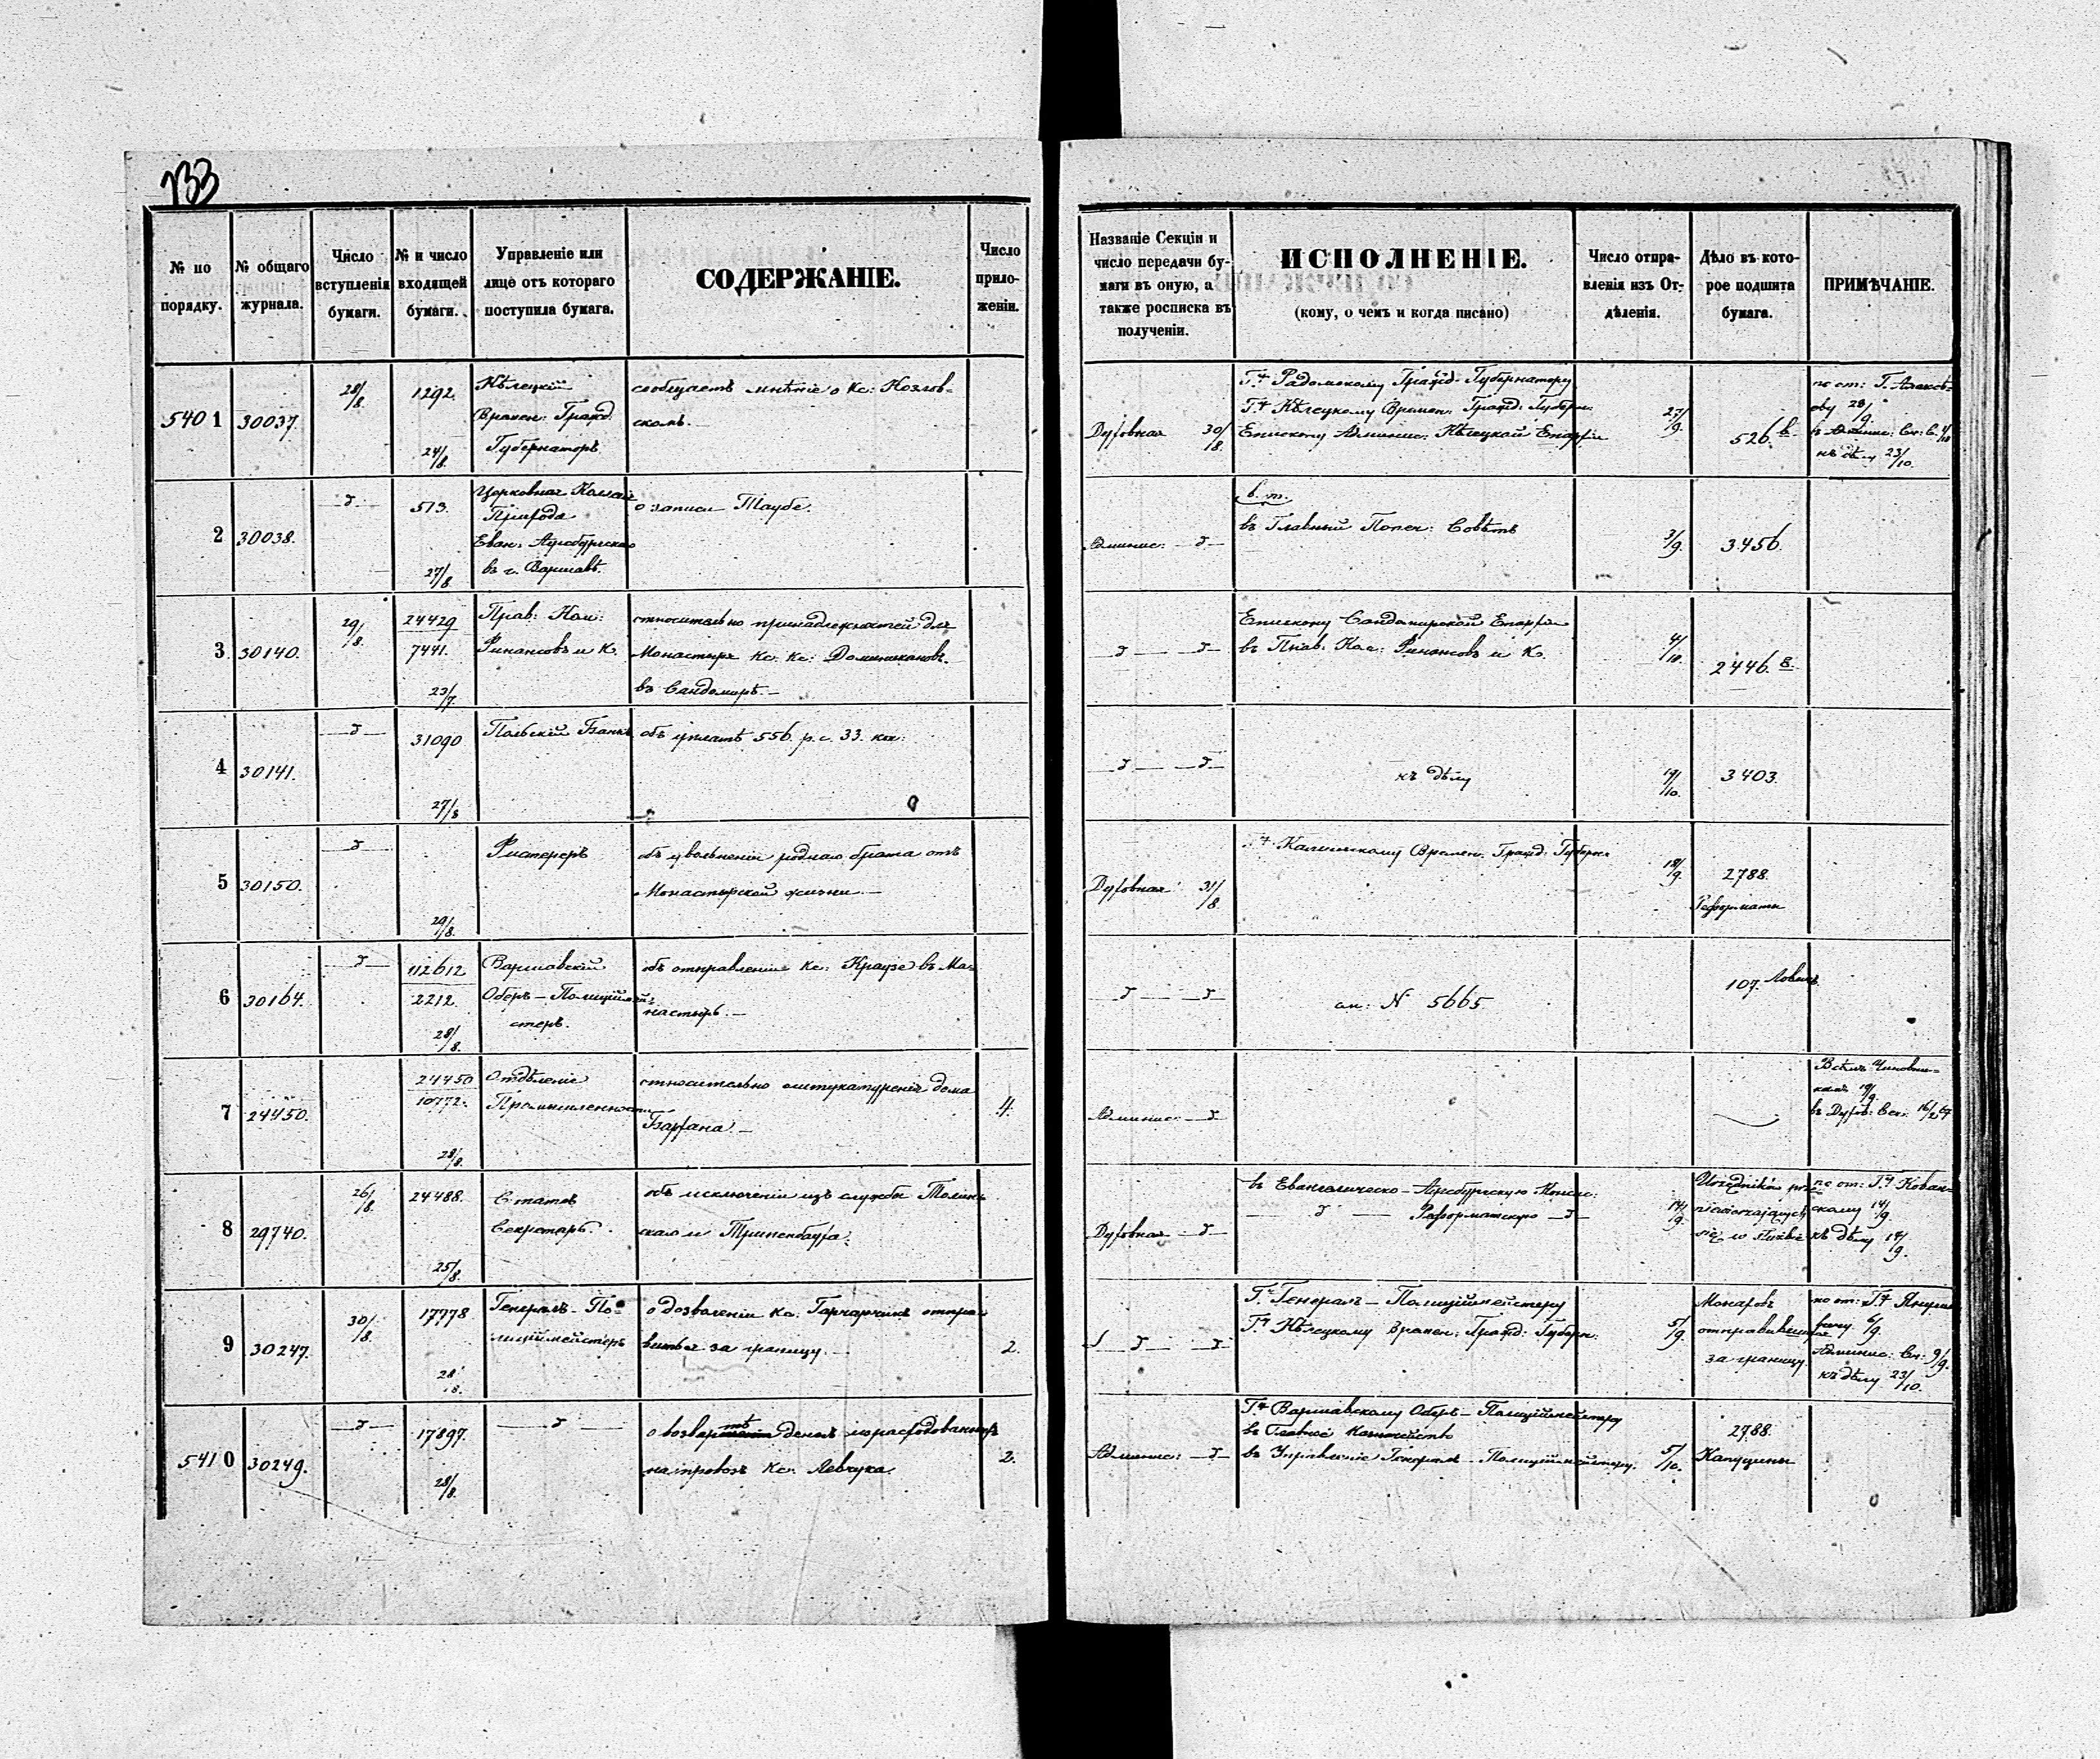 133
№ по
порядку.
№ общаго
журнала.
Число
вступленія
бумаги.
№ и число
входящей
бумаги.
Управленіе или
лице отъ котораго
поступила бумага.
СОДЕРЖАНІЕ.
Число
прило-
женіи.
Названіе Секціи и
число передачи бу-
маги въ оную, а
также росписка въ
полученіи.
ИСПОЛНЕНІЕ.
(кому, о чемъ и когда писано)
Число отпра-
вленія изъ От-
дѣленія.
Дѣло въ кото-
рое подшита
бумага.
ПРИМѢЧАНІЕ.
5401
30037.
28/8.
1292.
24/8.
Кѣлецкій
Времен: Гражд:
Губернаторъ.
сообщаетъ мнѣніе о Кс: Козлов-
скомъ.
Духовная 30/8.
Гну Радомскому Гражд. Губернатору
Гну Кѣлецкому Времен: Гражд: Губерн:
Епископу Админис: Кѣлецкой Епархіи
27/9.
526.
къ дѣлу 23/10.
2
30038.
513.
27/8.
Церковная
Прихода
Еван: Аугсбургскаго
въ г. Варшавѣ.
о записи Таубе.
Админис:
в. т.
въ Главный Попеч: Совѣтъ
3/9.
3456.
3.
30140.
29/8.
24429
7441.
23/7.
Прав: Ком:
Финансовъ и К.
относительно принадлежностей для
Монастыря Кс. Кс: Доминикановъ
въ Сандомирѣ.—
Епископу Сандомирской Епархіи
въ Прав: Ком: Финансовъ и К.
4/10.
2446.
4
30141.
31090
27/8
Польскій Банкъ
объ уплатѣ 556. р. с. 33. коп:
къ дѣлу
3403.
5
30150.
29/8.
Фистереръ
объ увольненіи роднаго брата отъ
Монастырской жизни.—
Духовная 31/8.
Калишскому Времен. Гражд: Губерн:
18/9.
2788.
Реформаты
6
30164.
112612
2212.
28/8.
Варшавскій
Оберъ-Полиціймей-
стеръ.
объ отправленіи Кс: Краузе въ Мо-
настырь.—
ап: N 5665.
107. Ловичъ
7
24450.
24450
10772.
28/8.
Отдѣленіе
Промышленности
относительно оштукатуренія дома
4.
Админис:
Всѣмъ Чиновни-
камъ 19/9.
8
29740.
26/8.
24488.
25/8.
Статсъ
Секретарь.
объ исключеніи изъ службы
Духовная
въ Евангелическо-Аугсбургскую Консис:
Реформатскую
14/9.
къ дѣлу 14/9.
9
30247.
30/8.
17778
28/8.
Генералъ-По-
лиціймейстеръ
о дозволеніи Кс. отпра-
виться за границу.—
2.
Гну Генералъ-Полиціймейстеру
Гну Кѣлецкому Времен: Гражд: Губерн:
5/9.
отправившіеся
за границу.
Админис: Сек: 9/9.
къ дѣлу 23/10.
5410
30249.
17897.
28/8.
о возвратѣ денегъ израсходованныхъ
на провозъ Кс. Левчука.
2.
Админис:
Гну Варшавскому Оберъ-Полиціймейстеру
въ Главное Казначейство
въ Управленіе Генералъ-Полиціймейстеру.
5/10.
2788.
Капуцины